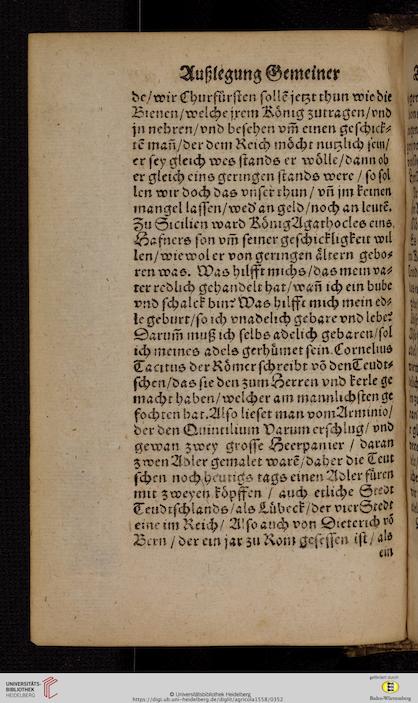 Außlegung Gemeiner
de/wir Churfürsten sollẽ jetzt thun wie die
Bienen/welche jrem König zutragen/vnd
jn nehren/vnd besehen vm̃ einen geschick-
tẽ mañ/der dem Reich möcht nutzlich sein/
er sey gleich wes stands er wölle/dann ob
er gleich eins geringen stands were / so sol
len wir doch das vnser thun / vñ jm keinen
mangel lassen/wed' an geld/noch an leutẽ.
Zu Sicilien ward König Agathocles eins
Hafners son vm̃ seiner geschickligkeit wil
len/wiewol er von geringen ältern gebo-
ren was. Was hilfft michs/das mein va-
ter redlich gehandelt hat/wañ ich ein bube
vnd schalck bin? Was hilfft mich mein ed-
le geburt/so ich vnadelich gebare vnd lebe?
Darum̃ muß ich selbs adelich gebaren/sol
ich meines adels gerhümet sein. Cornelius
Tacitus der Römer schreibt võ den Teudt-
schen/das sie den zum Herren vnd kerle ge
macht haben/welcher am mannlichsten ge
fochten hat. Also lieset man vom Arminio/
der den Quintilium Varum erschlug/ vnd
gewan zwey grosse Heerpanier / daran
zwen Adler gemalet warẽ/daher die Teut
schen noch heutigs tags einen Adler füren
mit zweyen köpffen / auch etliche Stedt
Teudtschlands/als Lübeck/der vier Stedt
eine im Reich/ Also auch von Dieterich võ
Bern / der ein jar zu Rom gesessen ist/ als
ein
UNIVERSITÄTS-
BIBLIOTHEK
HEIDELBERG
© Universitätsbibliothek Heidelberg
https://digi.ub.uni-heidelberg.de/diglit/agricola1558/0352
gefördert durch
Baden-Württemberg